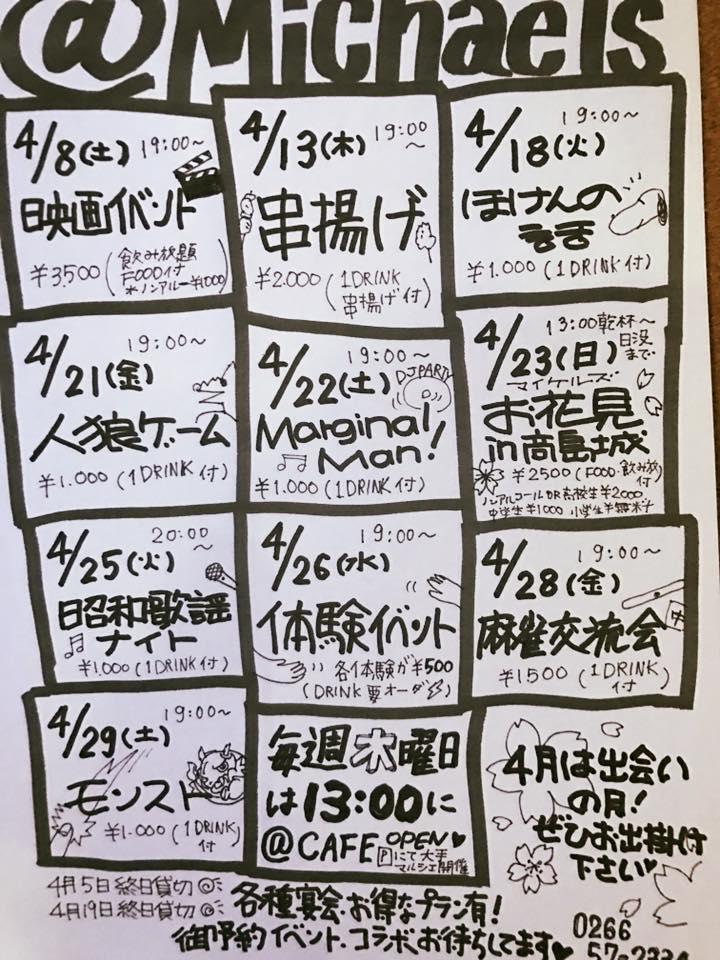 @Michaels
4/8(土) 19:00~
映画イベント
¥3,500 (飲み放題
FOOD付
※ノンアルー¥1000)
4/13(木) 19:00~
串揚げ
¥2.000 (1DRINK
串揚げ付)
4/18(火) 19:00~
ほけんの
¥1.000 (1DRINK付)
4/21(金) 19:00~
人狼ゲーム
¥1.000 (1DRINK付)
4/22(土) 19:00~
DJ PARTY
Marginal
Man!
¥1.000 (1DRINK付)
4/23(日) 13:00乾杯~
日没まで
マイケルズ
お花見
in高島城
¥2500 (FOOD・飲み放付)
ノンアルコールOR高校生¥2000
中学生¥1000 小学生
4/25(火) 20:00~
昭和歌謡
ナイト
¥1.000 (1DRINK付)
4/26(水) 19:00~
体験イベント
各体験が¥500
(DRINK要オーダー)
4/28(金) 19:00~
麻雀交流会
¥1500 (1DRINK付)
4/29(土) 19:00~
モンスト
¥1.000 (1DRINK付)
毎週木曜日
は13:00に
@CAFE OPEN♥
Pにて大手
マルシェ開催
4月は出会い
の月!
ぜひお出掛け
下さい♥
4月5日終日貸切
4月19日終日貸切
各種宴会、お得なプラン有!
御予約イベント、コラボ、お待ちしてます♥
0266
57-2334